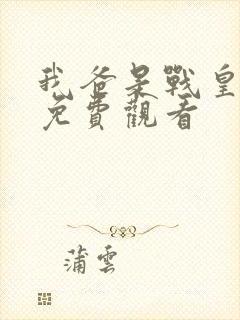 我爸是戰皇
免費觀看
蒲雲